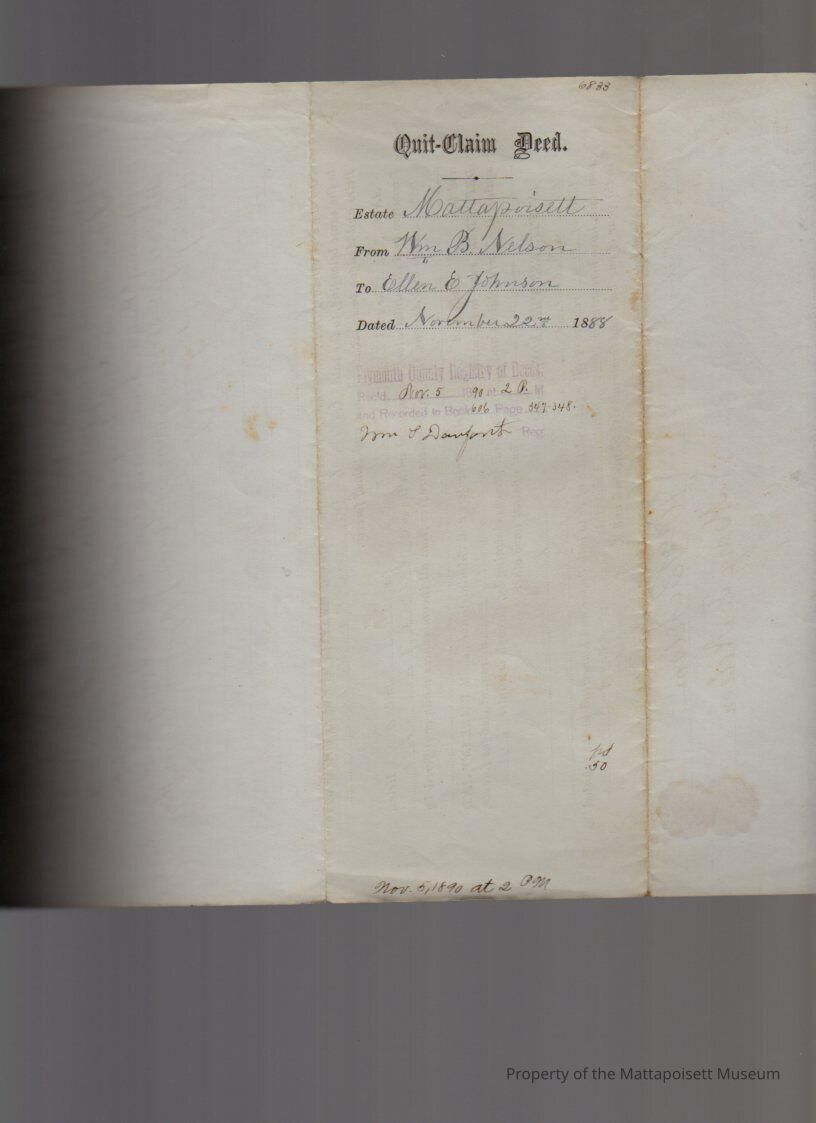 6833
Quit-Claim Deed.
Estate Mattapoisett
From Wm B. Nelson
To Ellen E Johnson
Dated November 22nd 1888
Plymouth County Registry of Deeds.
Rec'd. Nov. 5 1890 at 2 P. M
and Recorded in Book 606 Page 347-348.
Wm S Danforth Reg.
pd
.50
Nov. 5, 1890 at 2 PM
Property of the Mattapoisett Museum